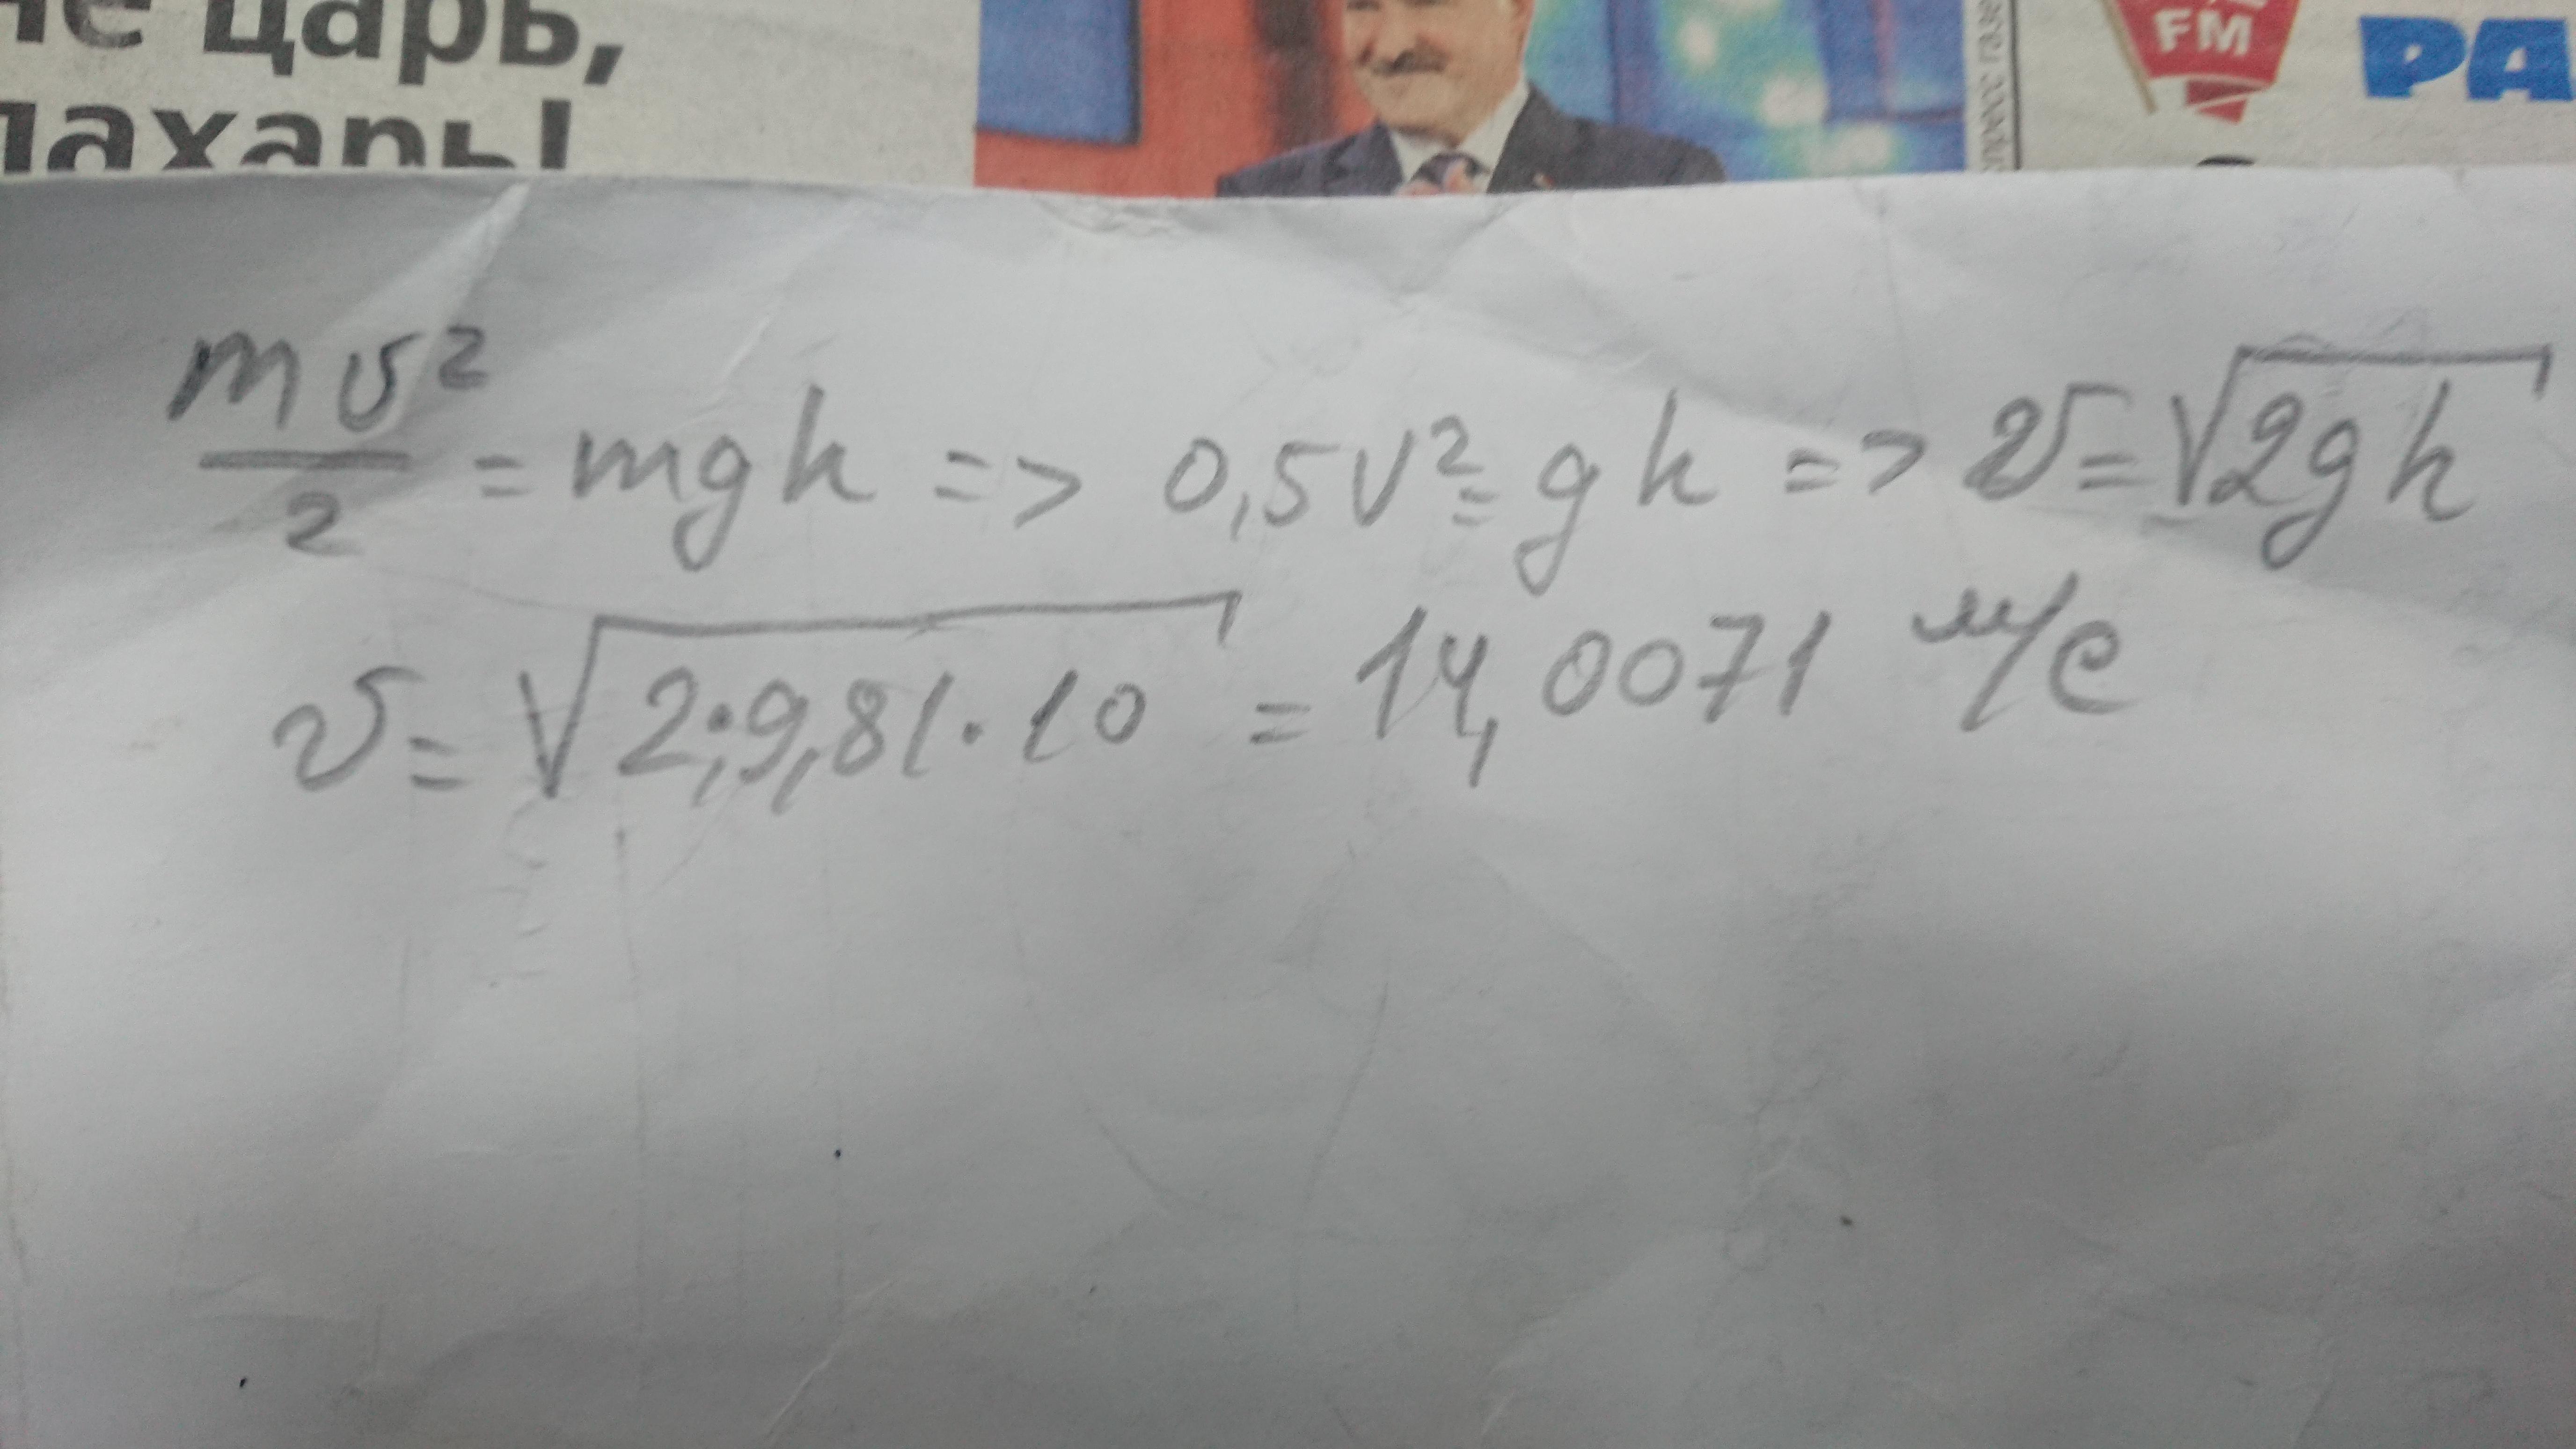 царь,
FM
РА
mv²/2 = mgh => 0,5v² = gh => v = √2gh
v = √2·9,81·10 = 14,0071 м/с